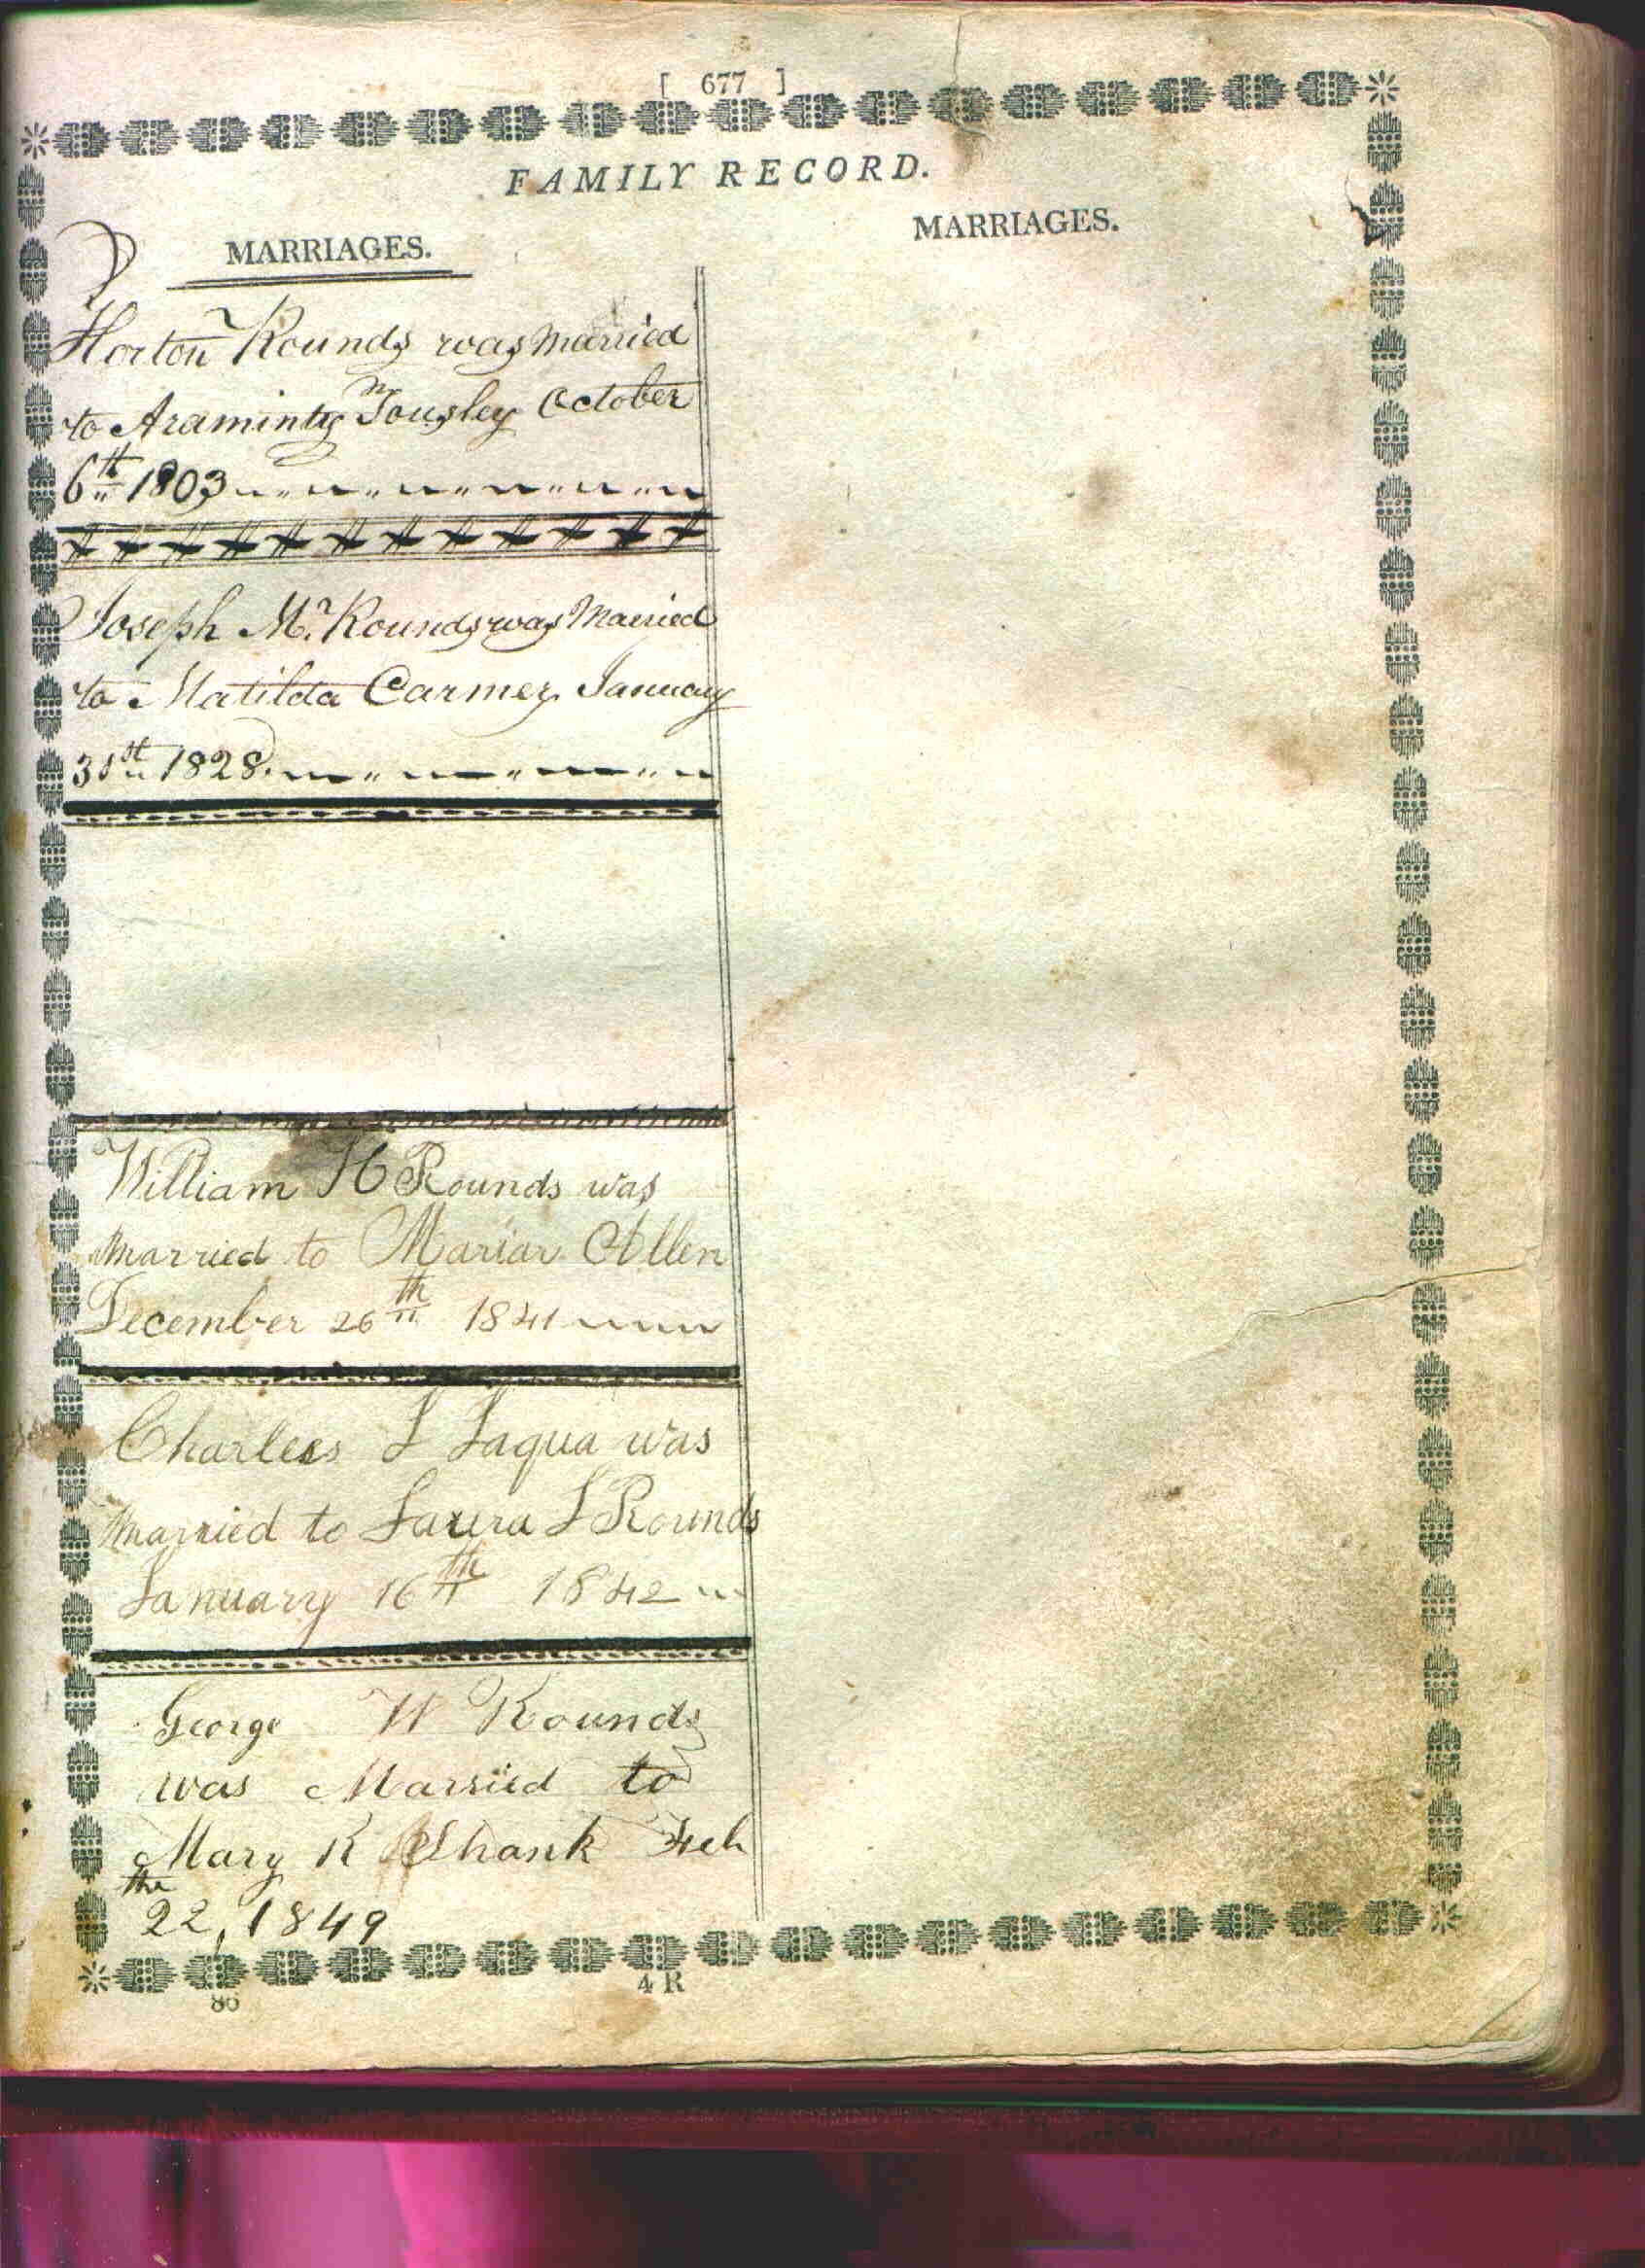 [ 677 ]
FAMILY RECORD.
MARRIAGES.
MARRIAGES.
Horton Rounds was Married
to Araminty Tousley October
6th 1803
Joseph M. Rounds was Married
to Matilda Carmer January
31st 1828
William H Rounds was
Married to Mariar Allen
December 26th 1841
Charles L Laqua was
Married to Laura L Rounds
January 16th 1842
George W Rounds
was Married to
Mary R Shank Feb
the
22, 1849
4 R
86